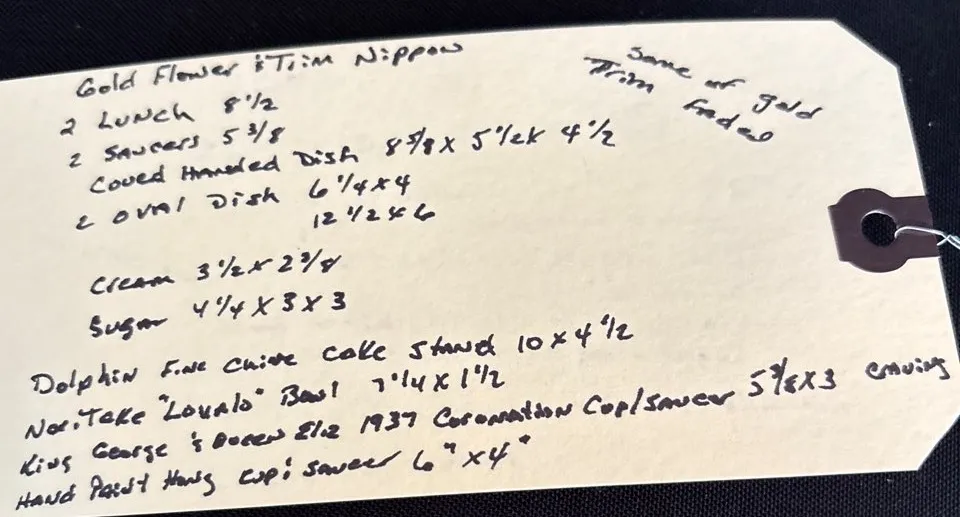 Gold Flower & Trim Nippon
Some of gold
Trim Faded
2 Lunch 8 1/2
2 Saucers 5 3/8
Coved Handled Dish 8 5/8 x 5 1/2 x 4 1/2
2 Oval Dish 6 1/4 x 4
12 1/2 x 6
Cream 3 1/2 x 2 3/8
Sugar 4 1/4 x 3 x 3
Dolphin Fine Chine Cake Stand 10 x 4 1/2
Noritake "" Bowl 7 1/4 x 1 1/2
King George & Queen Eliz 1937 Coronation Cup/Saucer 5 3/8 x 3
Hand Paint Cup & Saucer 6" x 4"